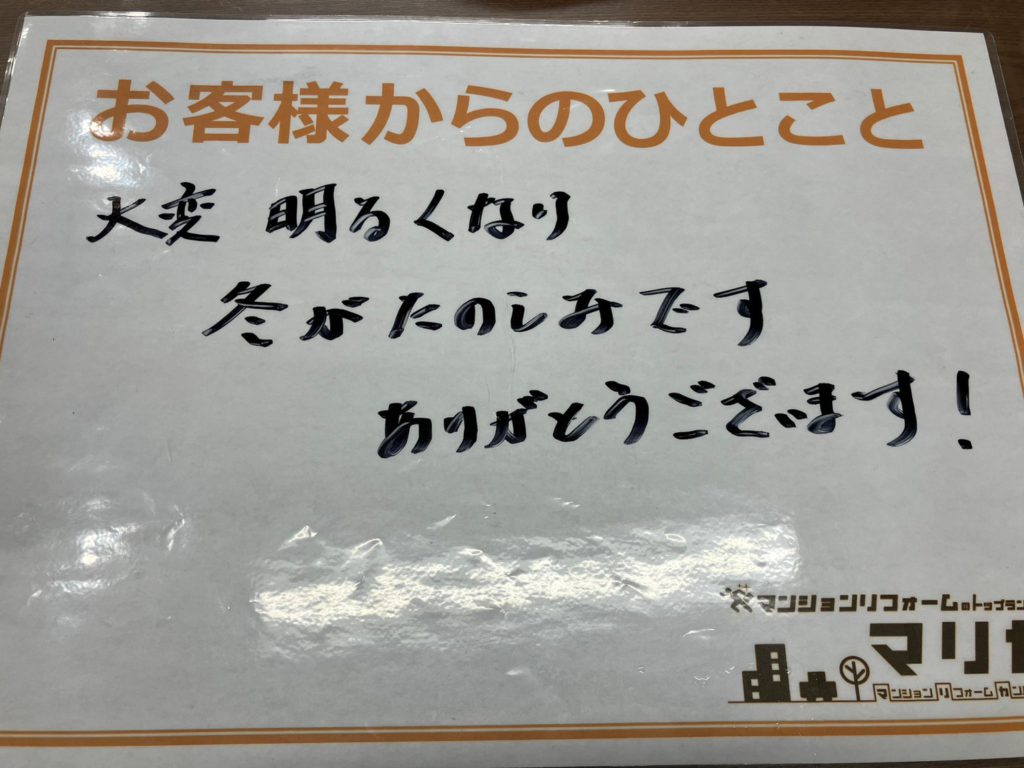 お客様からのひとこと
大変 明るくなり
冬がたのしみです
ありがとうございます!
マンションリフォームのトップラン
マリ
マンションリフォームカン